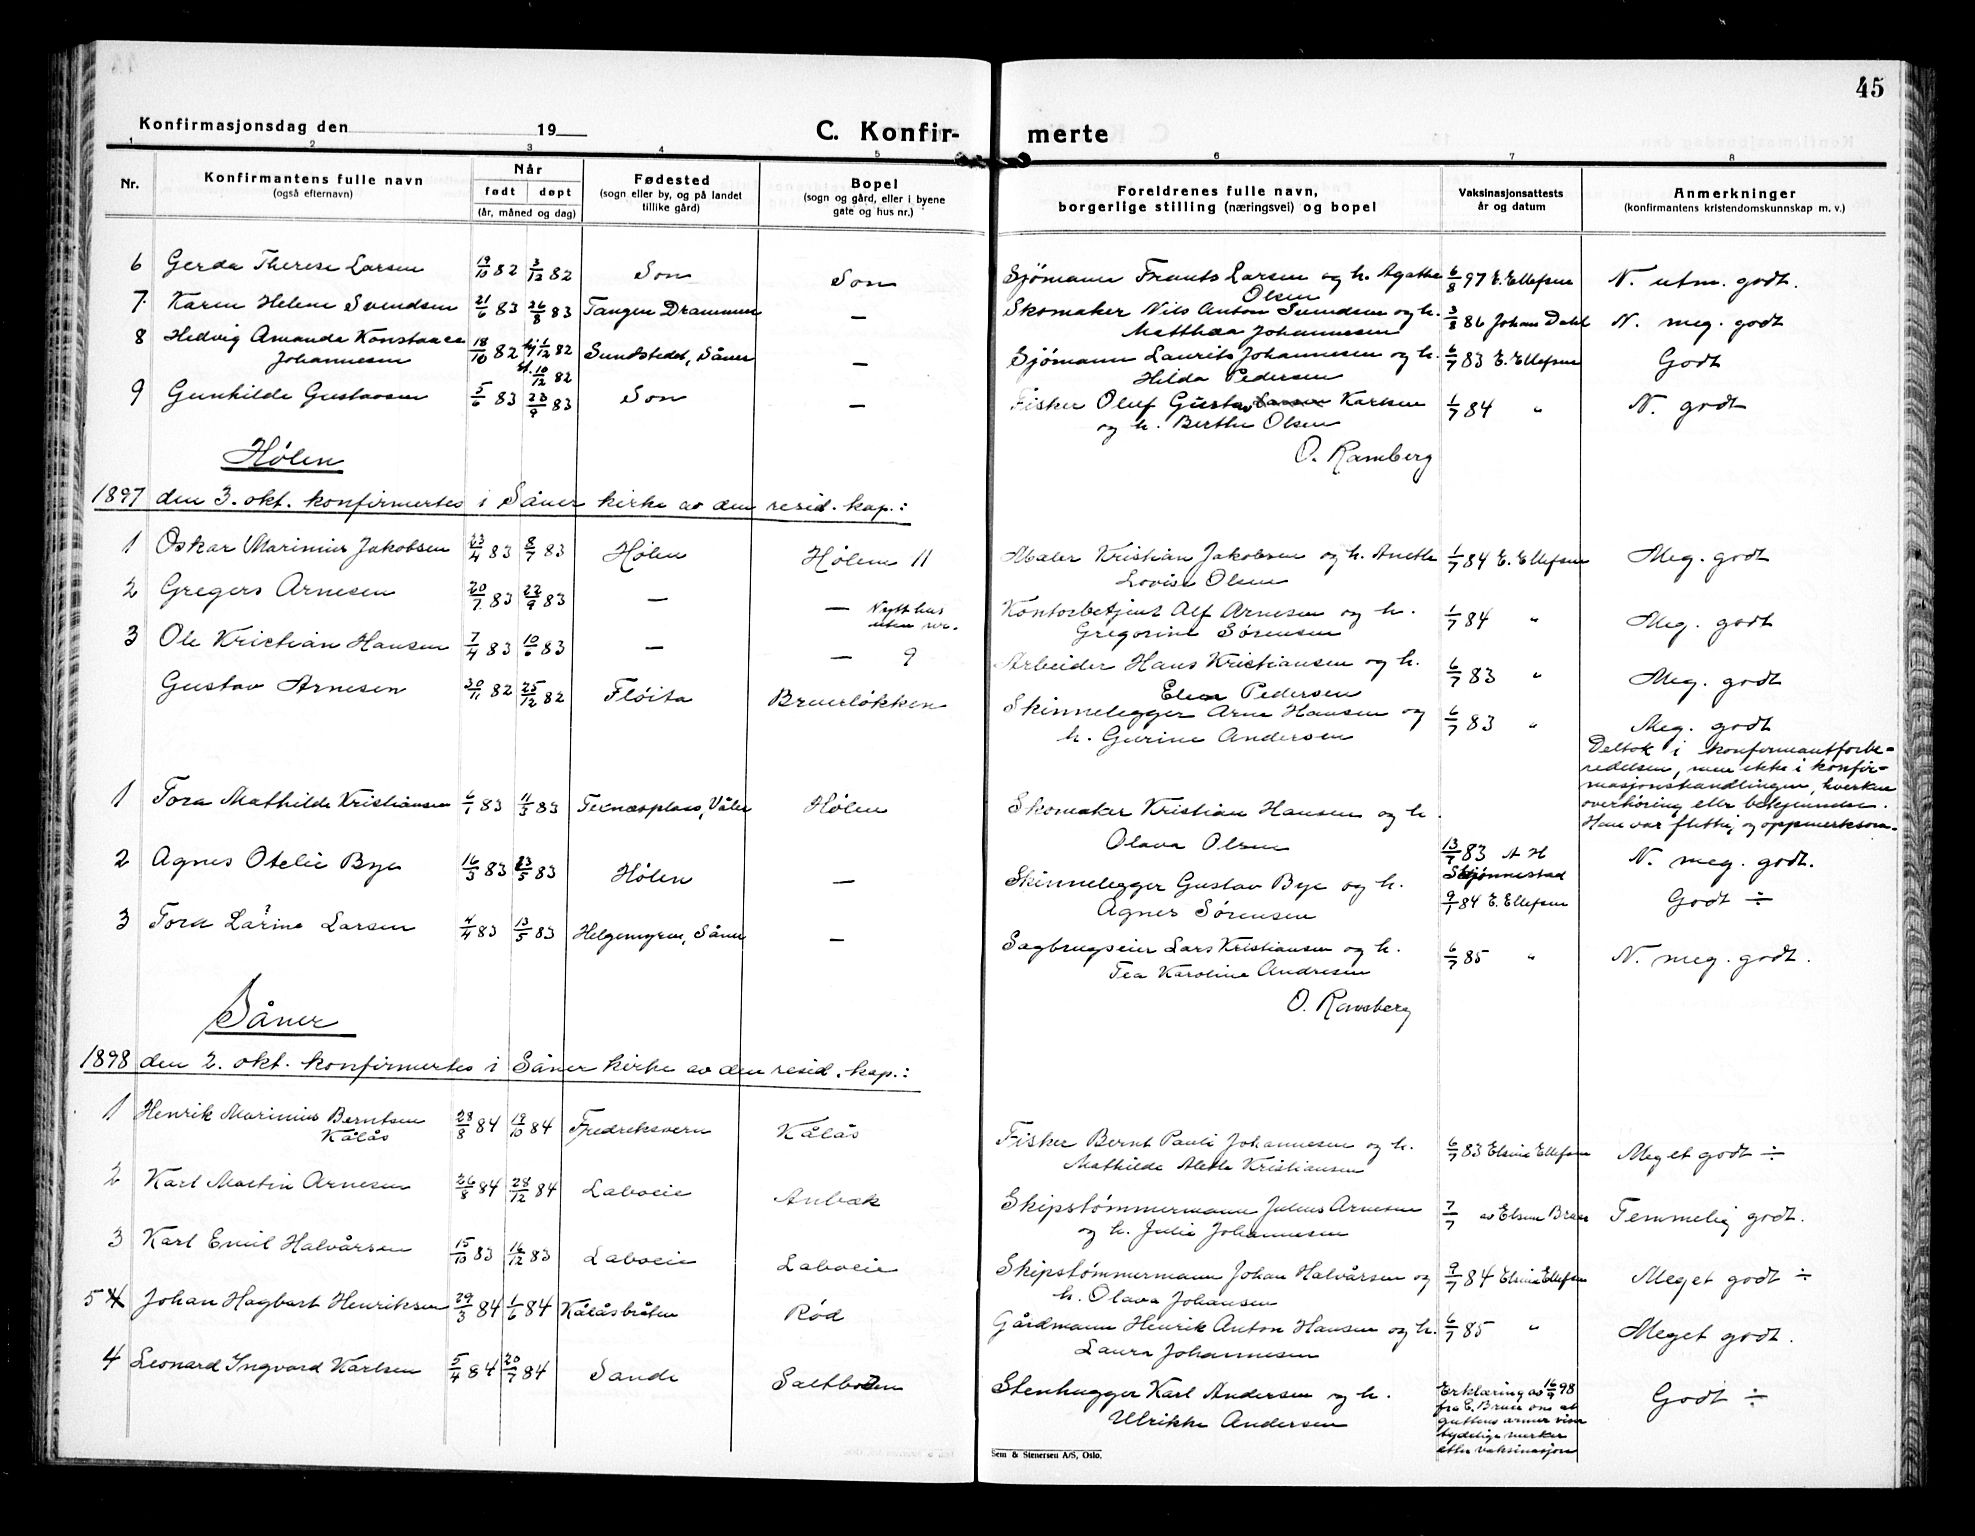 45
Konfirmasjonsdag den 19
C. Konfir- merte
1 2 3 4 5 6 7 8
Nr.
Konfirmantens fulle navn
(også efternavn)
Når
født døpt
(år, måned og dag)
Fødested
(sogn eller by, og på landet
tillike gård)
Bopel
(sogn og gård, eller i byene
gate og hus nr.)
Foreldrenes fulle navn,
borgerlige stilling (næringsvei) og bopel
Vaksinasjonsattests
år og datum
Anmerkninger
(konfirmantens kristendomskunnskap m. v.)
6 Gerda Therese Larsen 19/10 82 3/12 82 Son Son Sjømann Frants Larsen og h. Agathe 6/8 97 E. Ellefsen N. utm. godt.
Olsen
7 Karen Helene Svendsen 21/6 83 26/8 83 Tangen Drammen — Skomaker Nils Anton Svendsen og h. 3/8 86 Johan Dahl N. meg. godt
Matthea Johannesen
8 Hedvig Amanda Konstanse 18/10 82 hj. 1/12 82 Sundstedet, Såner — Sjømann Laurits Johannesen og h. 6/7 83 E. Ellefsen Godt
Johannesen 10/12 82 Hilda Pedersen
9 Gunhilde Gustavsen 5/6 83 23/9 83 Son — Fisker Oluf Gustav Larsen Karlsen 1/7 84 " N. godt
og h. Berthe Olsen
O. Ramberg
Hølen
1897 den 3. okt. konfirmertes i Såner kirke av den resid. kap.:
1 Oskar Marinius Jakobsen 23/4 83 8/7 83 Hølen Hølen 11 Maler Kristian Jakobsen og h. Anethe 1/7 84 E. Ellefsen Meg. godt
Lovise Olsen
2 Gregers Arnesen 20/7 83 22/9 83 — — Nytt hus Kontorbetjent Alf Arnesen og h. 1/7 84 " Meg. godt
uten nr. Gregorine Sørensen
3 Ole Kristian Hansen 7/4 83 10/6 83 — — 9 Arbeider Hans Kristiansen og h. 6/7 83 " Meg. godt
Elen Pedersen
Gustav Arnesen 30/11 82 25/12 82 Fløita Bruerløkken Skinnelegger Arne Hansen og 6/7 83 " Meg. godt
h. Gurine Andersen
Deltok i konfirmantforbe-
redelsen, men ikke i konfir-
masjonshandlingen, hverken
overhøring eller bekjennelse.
Han var flittig og oppmerksom.
1 Tora Mathilde Kristiansen 6/1 83 11/3 83 Texnæsplass, Våler Hølen Skomaker Kristian Hansen og h.
Olava Olsen 13/7 83 A H Skjønnestad N. meg. godt.
2 Agnes Otelie Bye 16/3 83 23/5 83 Hølen — Skinnelegger Gustav Bye og h. 9/7 84 E. Ellefsen Godt ÷
Agnes Sørensen
3 Tora Larine Larsen 4/4 83 13/5 83 Helgemyren, Såner — Sagbrugseier Lars Kristiansen og h. 6/7 85 " N. meg. godt.
Tea Karoline Andresen
O. Ramberg
Såner
1898 den 2. okt. konfirmertes i Såner kirke av den resid. kap.:
1 Henrik Marinius Berntsen 28/8 84 19/10 84 Fredriksvern Kålås Fisker Bernt Pauli Johannesen og h. 6/7 83 Elvine Ellefsen Meget godt ÷
Kålås Mathilde Alethe Kristiansen
2 Karl Martin Arnesen 26/8 84 28/12 84 Laboeie Anbæk Skipstømmermann Julius Arnesen 7/7 av Elsine Bruer Temmelig godt.
og h. Julie Johannesen
3 Karl Emil Halvårsen 15/10 83 16/12 83 Laboeie Laboeie Skipstømmermann Johan Halvårsen og 9/7 84 Elvine Ellefsen Meget godt ÷
h. Olava Johansen
5 4 Johan Hagbart Henriksen 29/3 84 1/6 84 Kålåsbråten Rød Gårdmann Henrik Anton Hansen og h. 6/7 85 " Meget godt.
Laura Johannesen
4 Leonard Ingvard Karlsen 5/4 84 20/7 84 Sande Saltboden Stenhugger Karl Andersen og h. Erklæring av 16/9 98 Godt ÷
Ulrikke Andersen fra E. Bruer om at
guttens armer viser
tydelige merker
etter vaksinasjon
Sem & Stenersen A/S, Oslo.